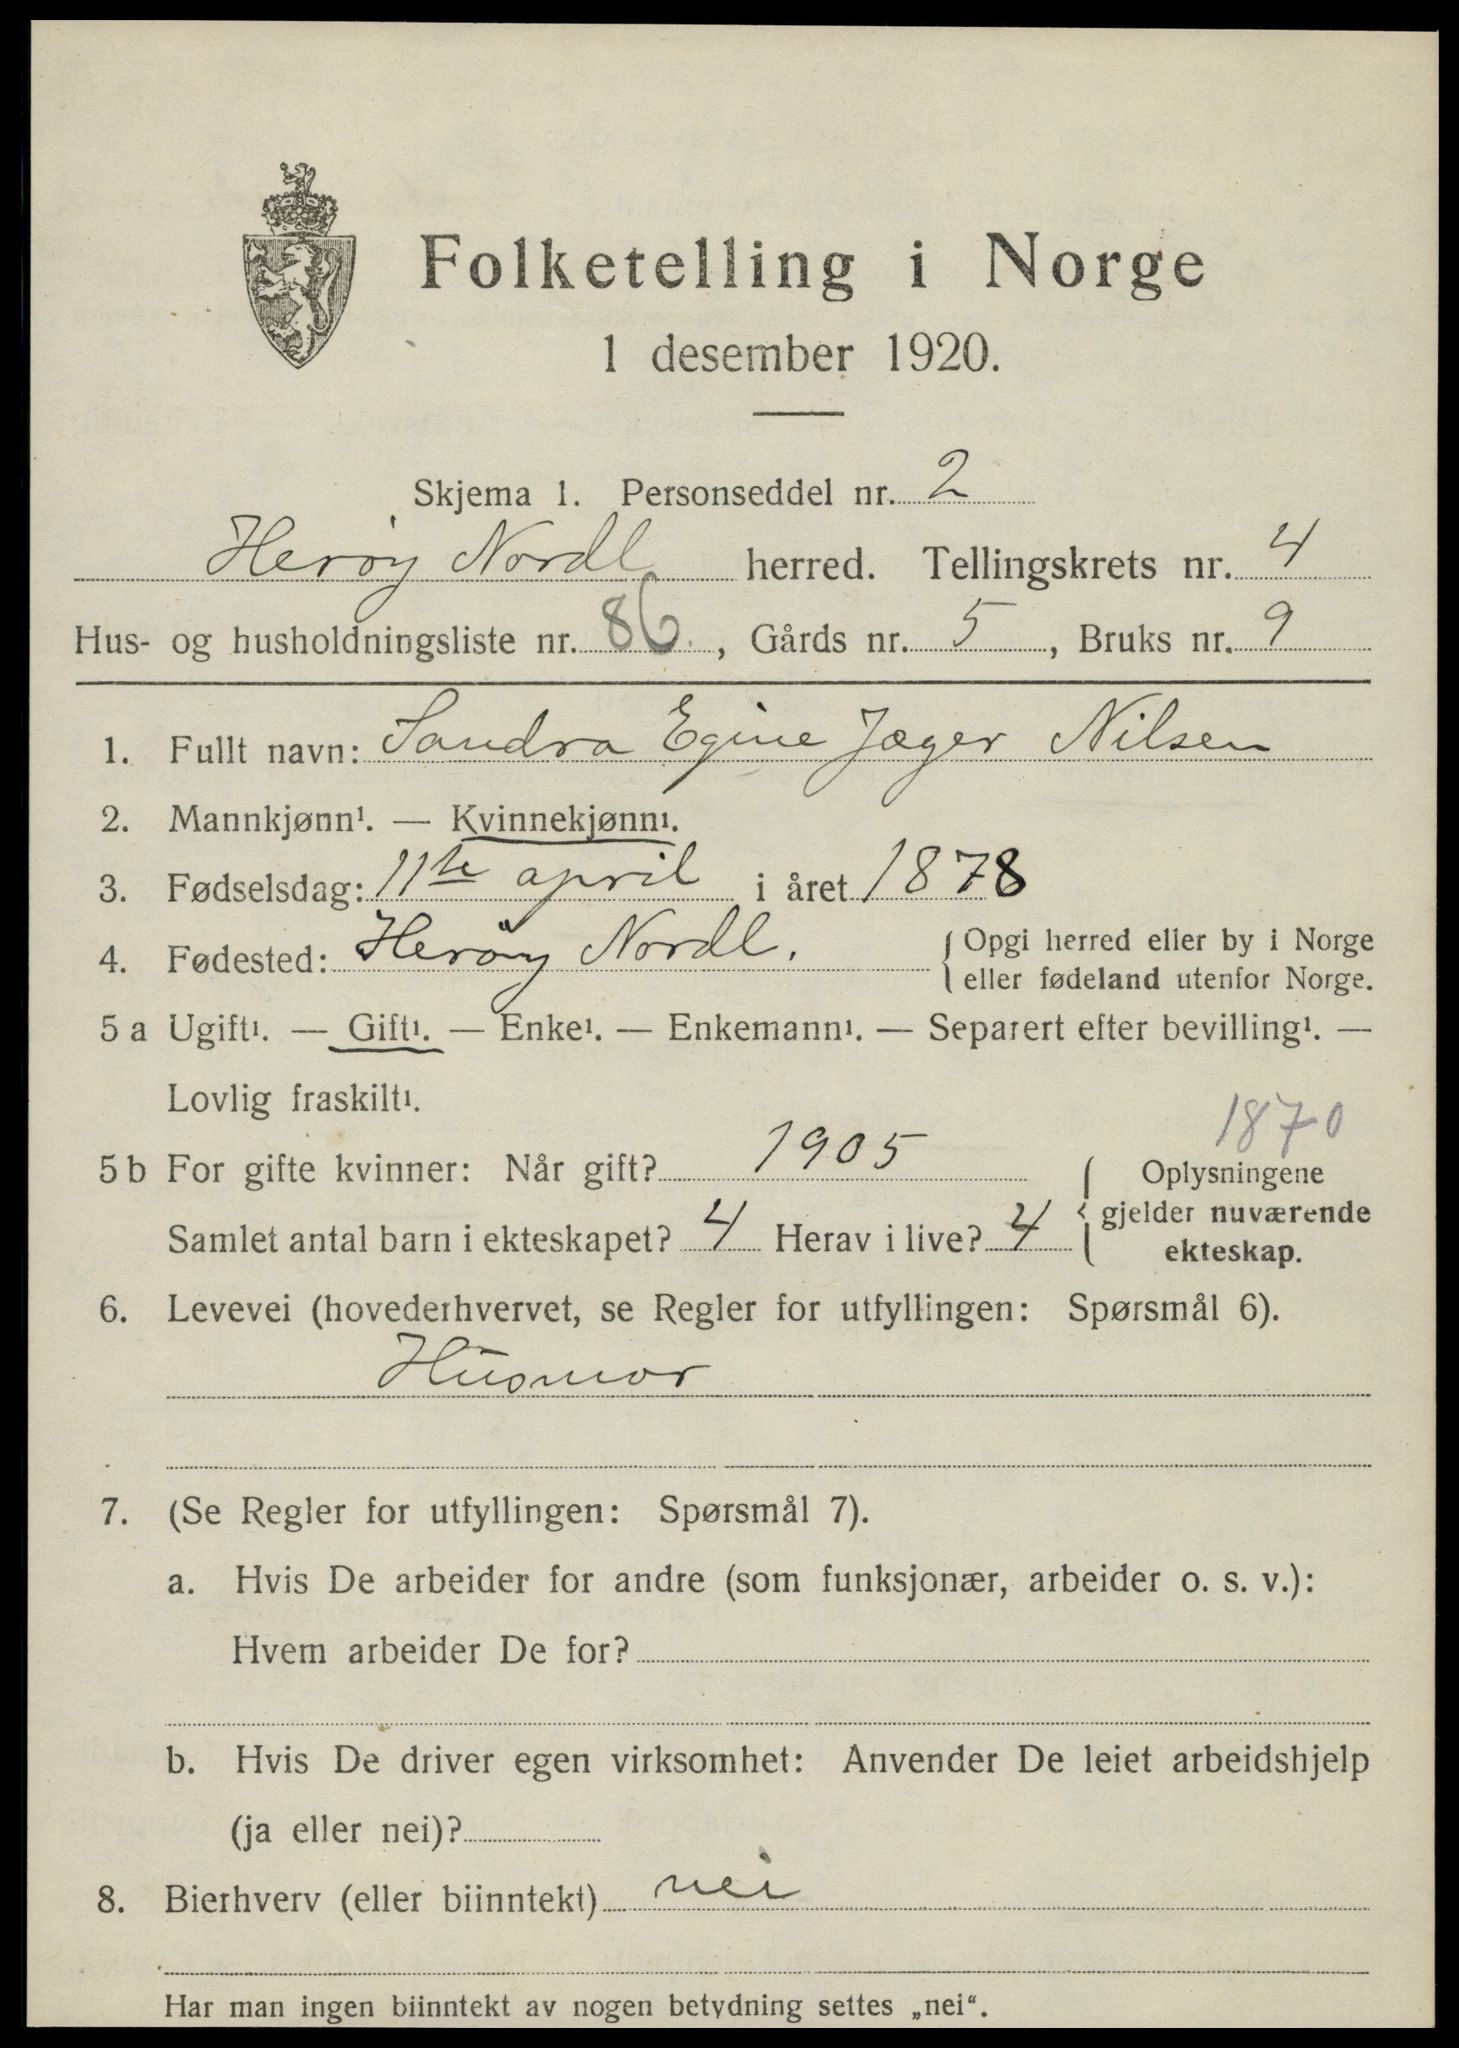 Folketelling i Norge
1 desember 1920.
Skjema 1. Personseddel nr. 2
Herøy Nordl herred. Tellingskrets nr. 4
Hus- og husholdningsliste nr. 86., Gårds nr. 5, Bruks nr. 9
1. Fullt navn: Sandra Egine Jæger Nilsen
2. Mannkjønn¹. — Kvinnekjønn¹.
3. Fødselsdag: 11te april i året 1878
4. Fødested: Herøy Nordl. { Opgi herred eller by i Norge
eller fødeland utenfor Norge.
5 a Ugift¹. — Gift¹. — Enke¹. — Enkemann¹. — Separert efter bevilling¹. —
Lovlig fraskilt¹.
1870
5 b For gifte kvinner: Når gift? 1905 { Oplysningene
gjelder nuværende
ekteskap.
Samlet antal barn i ekteskapet? 4 Herav i live? 4
6. Levevei (hovederhvervet, se Regler for utfyllingen: Spørsmål 6).
Husmor
7. (Se Regler for utfyllingen: Spørsmål 7).
a. Hvis De arbeider for andre (som funksjonær, arbeider o. s. v.):
Hvem arbeider De for?
b. Hvis De driver egen virksomhet: Anvender De leiet arbeidshjelp
(ja eller nei)?
8. Bierhverv (eller biinntekt) nei
Har man ingen biinntekt av nogen betydning settes „nei“.